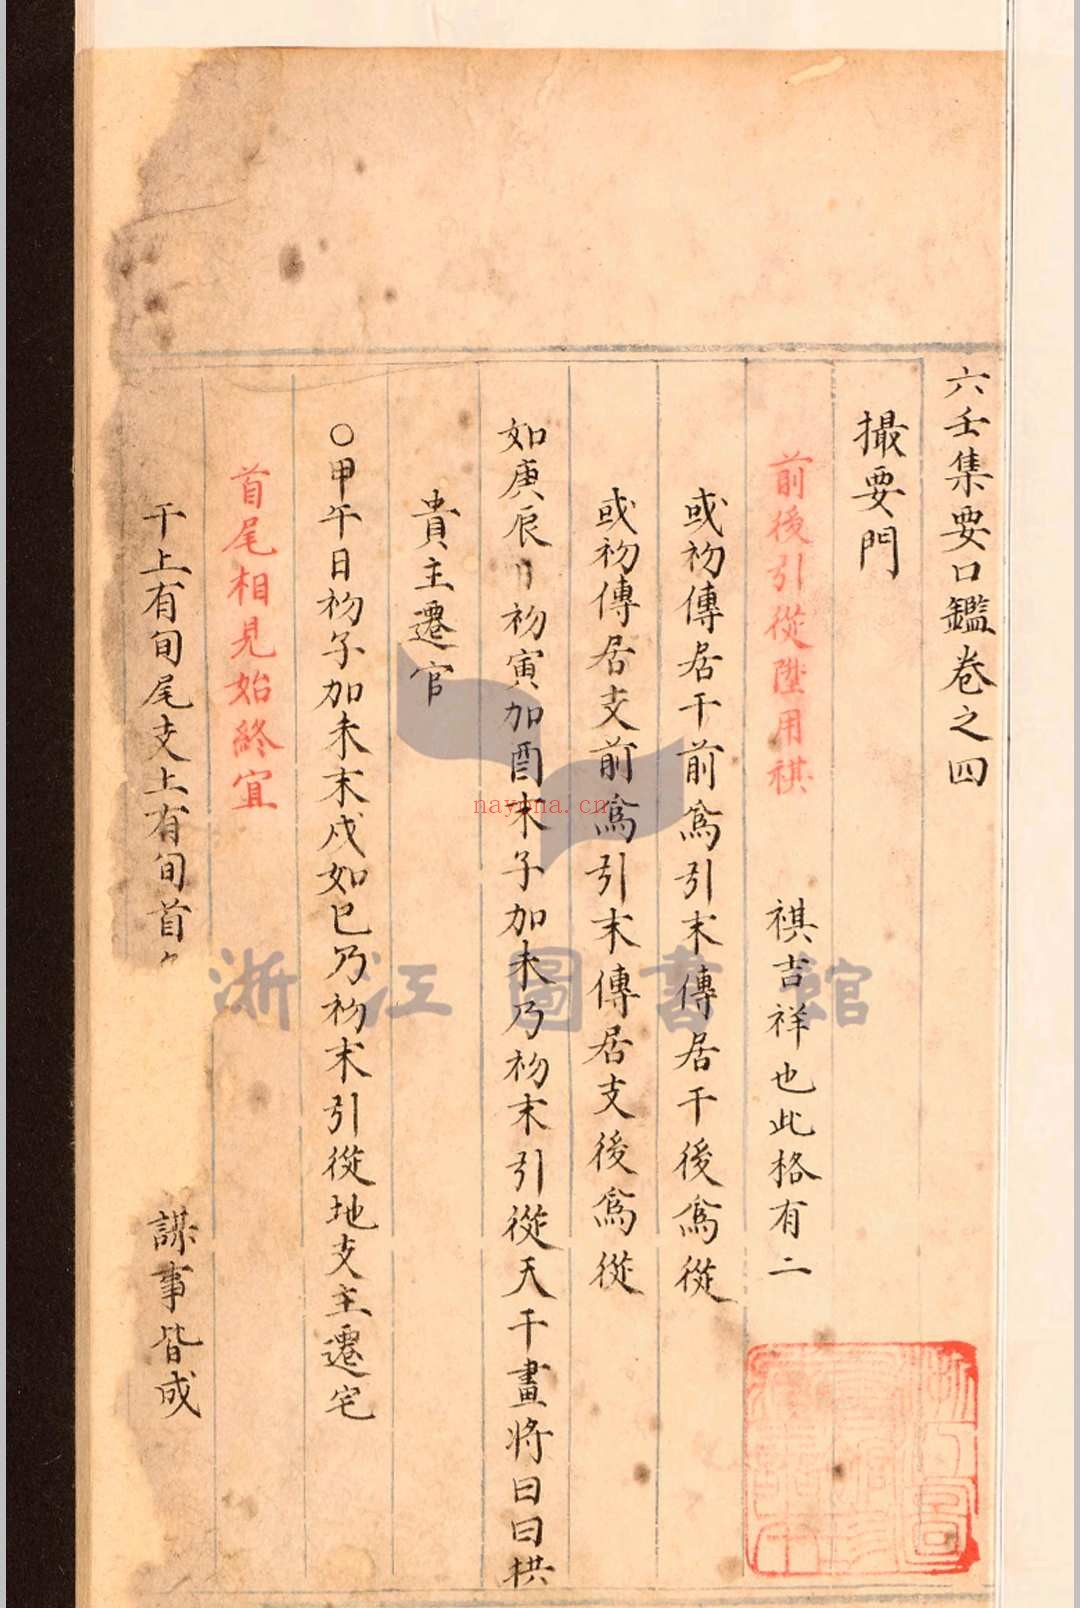 六壬集要口鑑卷之四
撮要門
前後引從陞用祺 祺吉祥也此格有二
或初傳居干前爲引末傳居干後爲從
或初傳居支前爲引末傳居支後爲從
如庚辰日初寅加酉末子加未乃初末引從天干晝將曰曰拱
貴主遷官
○甲午日初子加未末戌如巳乃初末引從地支主遷宅
首尾相見始終宜
干上有旬尾支上有旬首 謀事皆成
浙江圖書館
nayona.cn